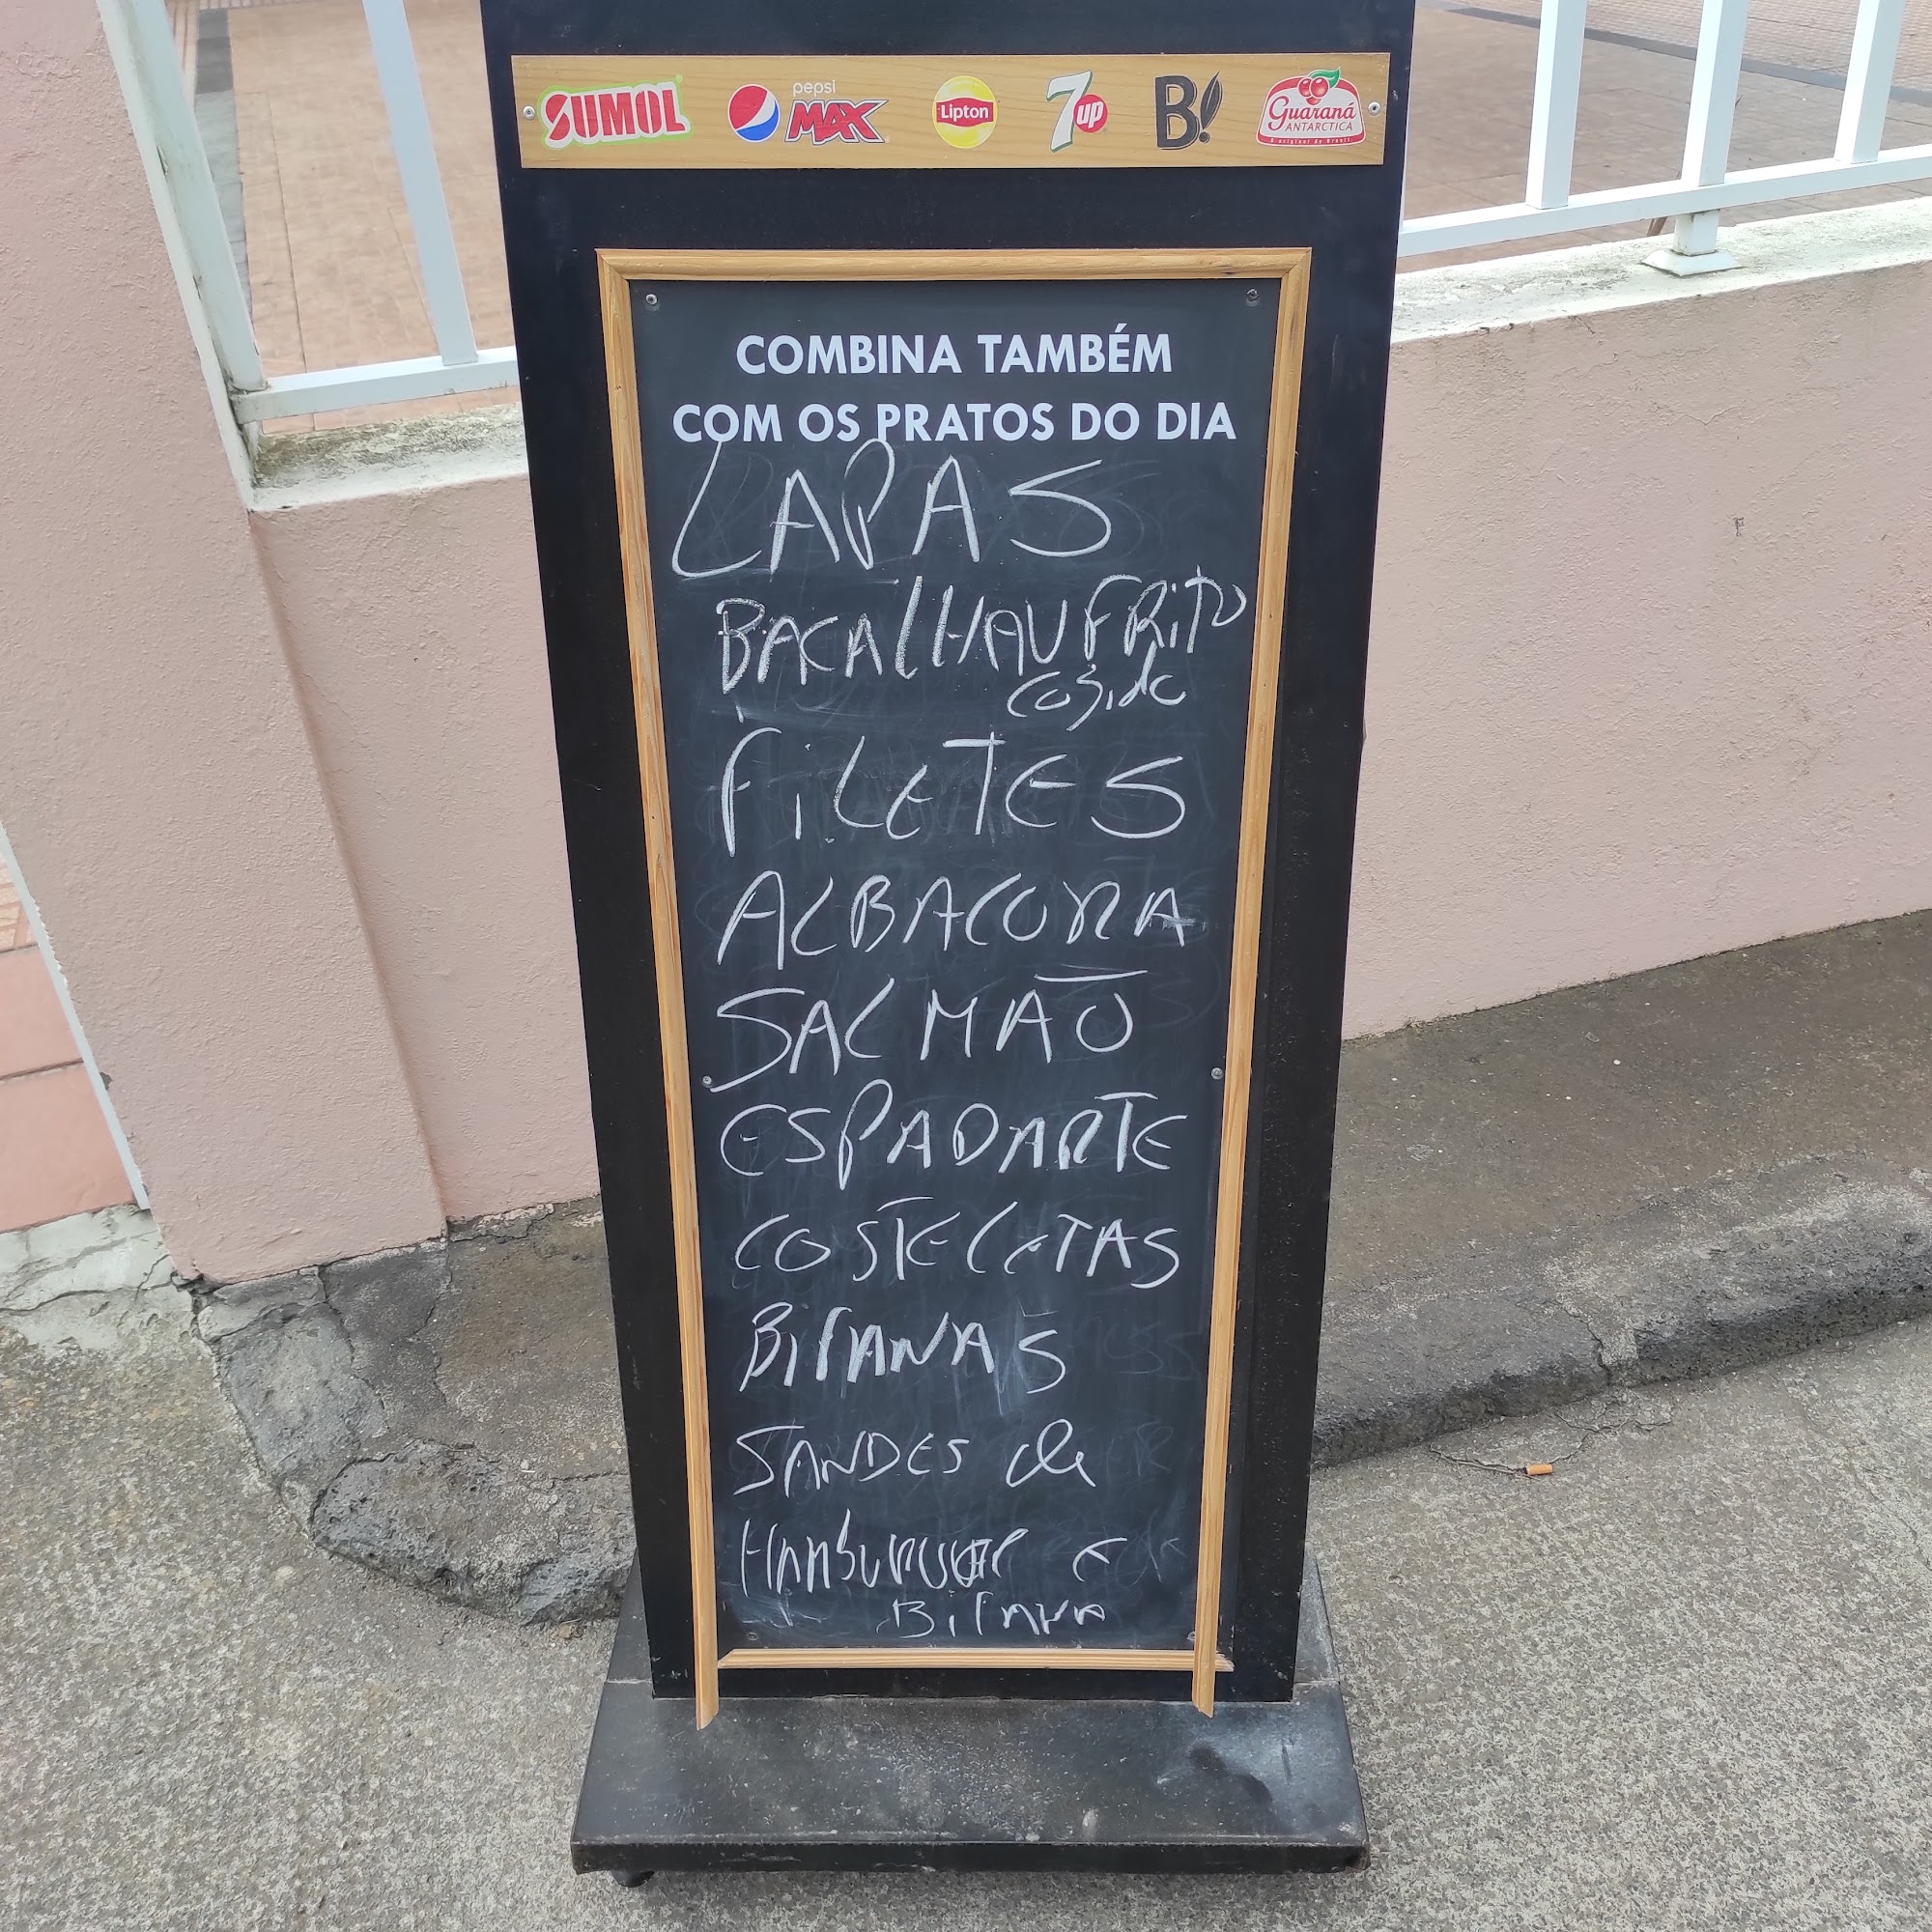 SUMOL pepsi MAX Lipton 7up B! Guaraná ANTARCTICA
COMBINA TAMBÉM
COM OS PRATOS DO DIA
LAPAS
BACAlHAU FRito
cosido
FiLETES
ALBACORA
SALMÃO
ESPADARTE
COSTELETAS
BifANAS
SANDES de
HAMbURGUER e
BifANA